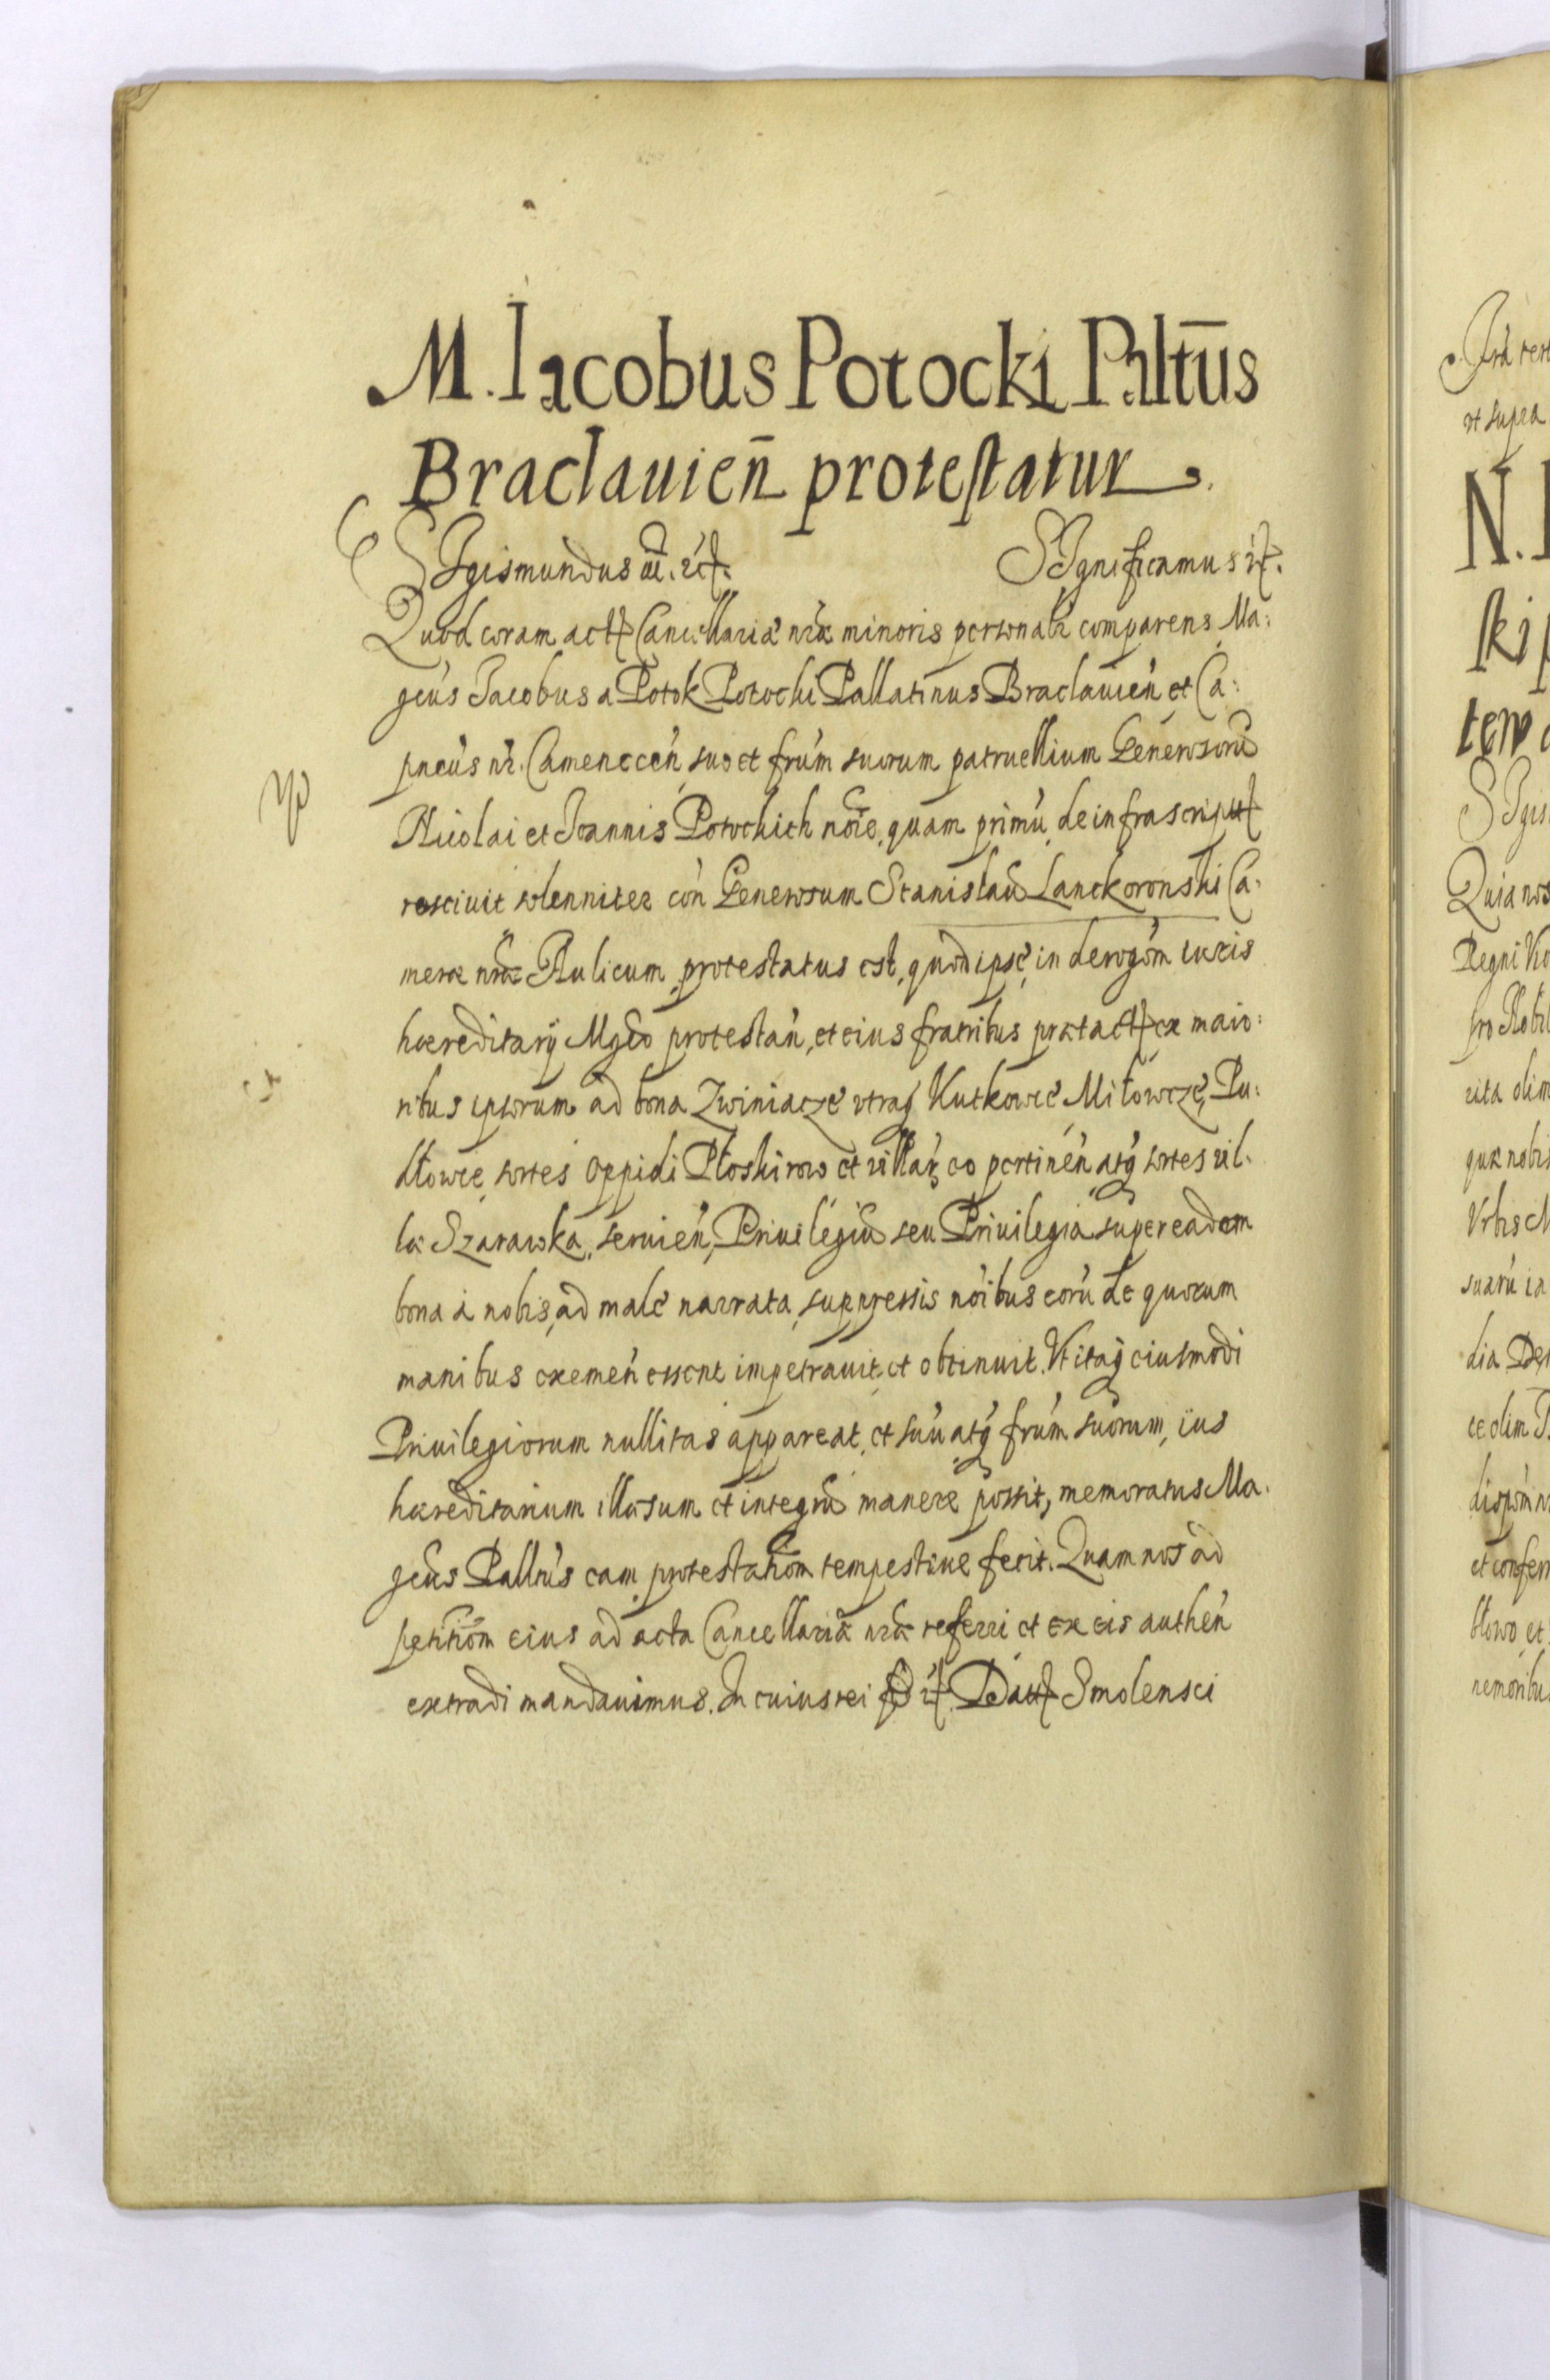 M. Iacobus Potocki Paltūs
Braclauieñ protestatur.
SIgismundus etc.
SIgnificamus etc.
Quod coram actis Cancellariæ nræ minoris personalr comparens Ma:
gcus Jacobus a Potok Potocki Pallatinus Braclauien et Ca:
pneus nr. Camenecen, suo et frum suorum patruellium Generosorū
Nicolai et Joannis Potockich noie, quam primu, de infrascriptis
resciuit solenniter con Generosum Stanislaū Lanckoronski Ca:
meræ nræ Aulicum, protestatus est, quod ipse, in derogom iuris
hæreditarij Mgco protestan, et eius fratribus prætactis ex maio:
ribus ipsorum ad bona Zwiniacze vtraq Kutkowce Milowcze, Pu:
dłowce, sortes oppidi Płoskirow et villar eo pertinen atq sortes vil:
læ Szarawka, seruien, Priuilegiū seu Priuilegia super eadem
bona a nobis, ad male narrata, suppressis noibus eoru de quorum
manibus exemen essent impetrauit, et obtinuit. Vt itaq eiusmodi
Priuilegiorum nullitas appareat, et suu atq frum suorum, ius
hæreditarium illæsum et integrū manere possit, memoratus Ma:
gcus Palltus eam protestationem tempestiue fecit. Quam nos ad
petitiom eius ad acta Cancellariæ nræ referri et ex eis authen
extradi mandauimus. In cuius rei fid etc. Datt Smolensci